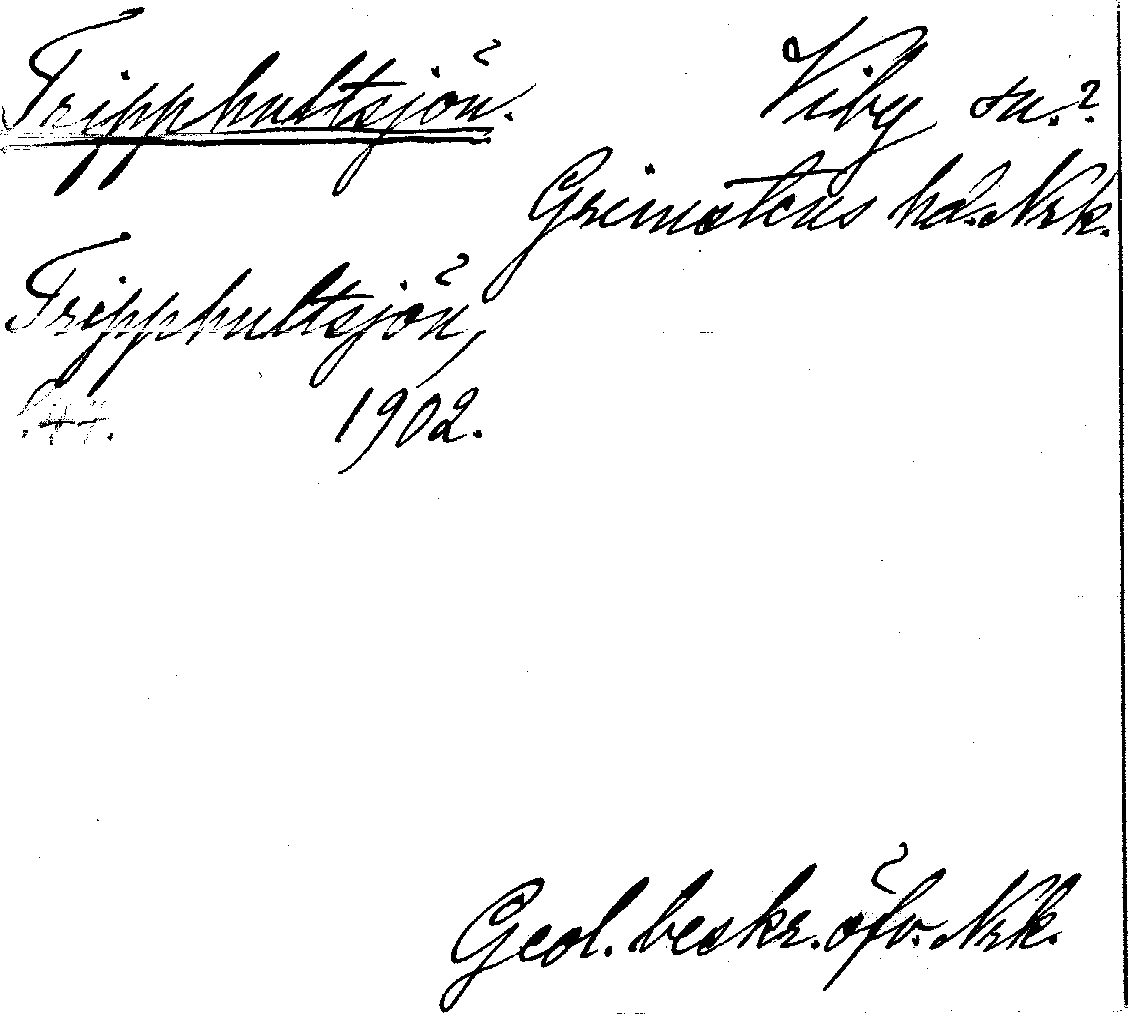 Tripphultsjön. Viby sn.?
Grimstens hd. Nrk.
Tripphultsjön,
1902.
Geol. beskr. öfv. Nrk.